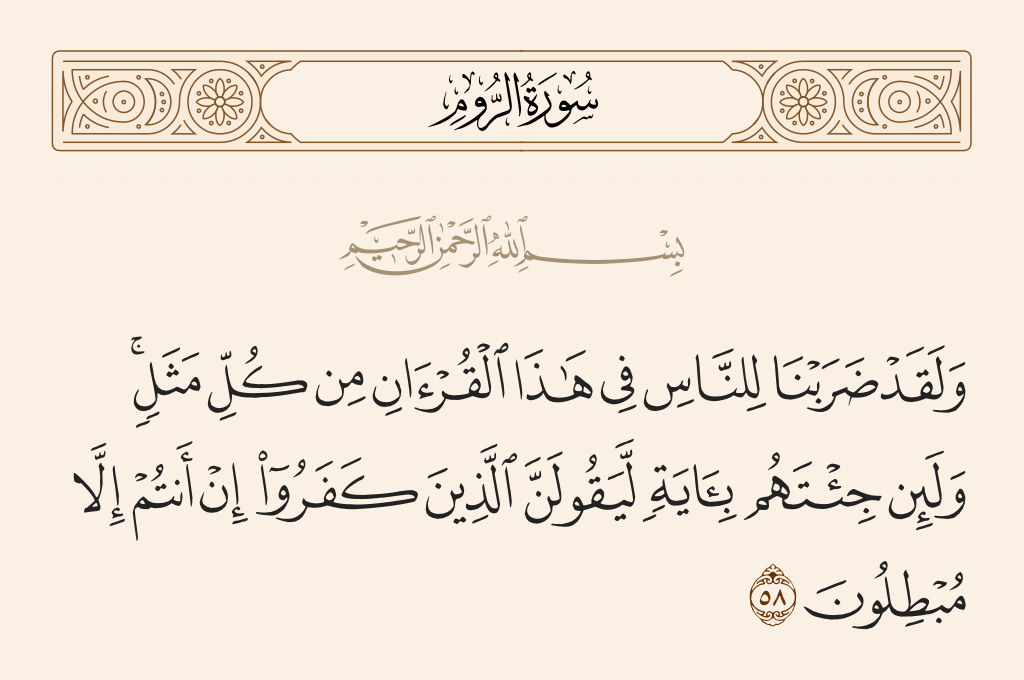 سُورَةُ الرُّومِ
بِسْمِ ٱللَّهِ ٱلرَّحْمَٰنِ ٱلرَّحِيمِ
وَلَقَدْ ضَرَبْنَا لِلنَّاسِ فِى هَـٰذَا ٱلْقُرْءَانِ مِن كُلِّ مَثَلٍ ۚ
وَلَئِن جِئْتَهُم بِـَٔايَةٍ لَّيَقُولَنَّ ٱلَّذِينَ كَفَرُوٓا۟ إِنْ أَنتُمْ إِلَّا
مُبْطِلُونَ ٥٨